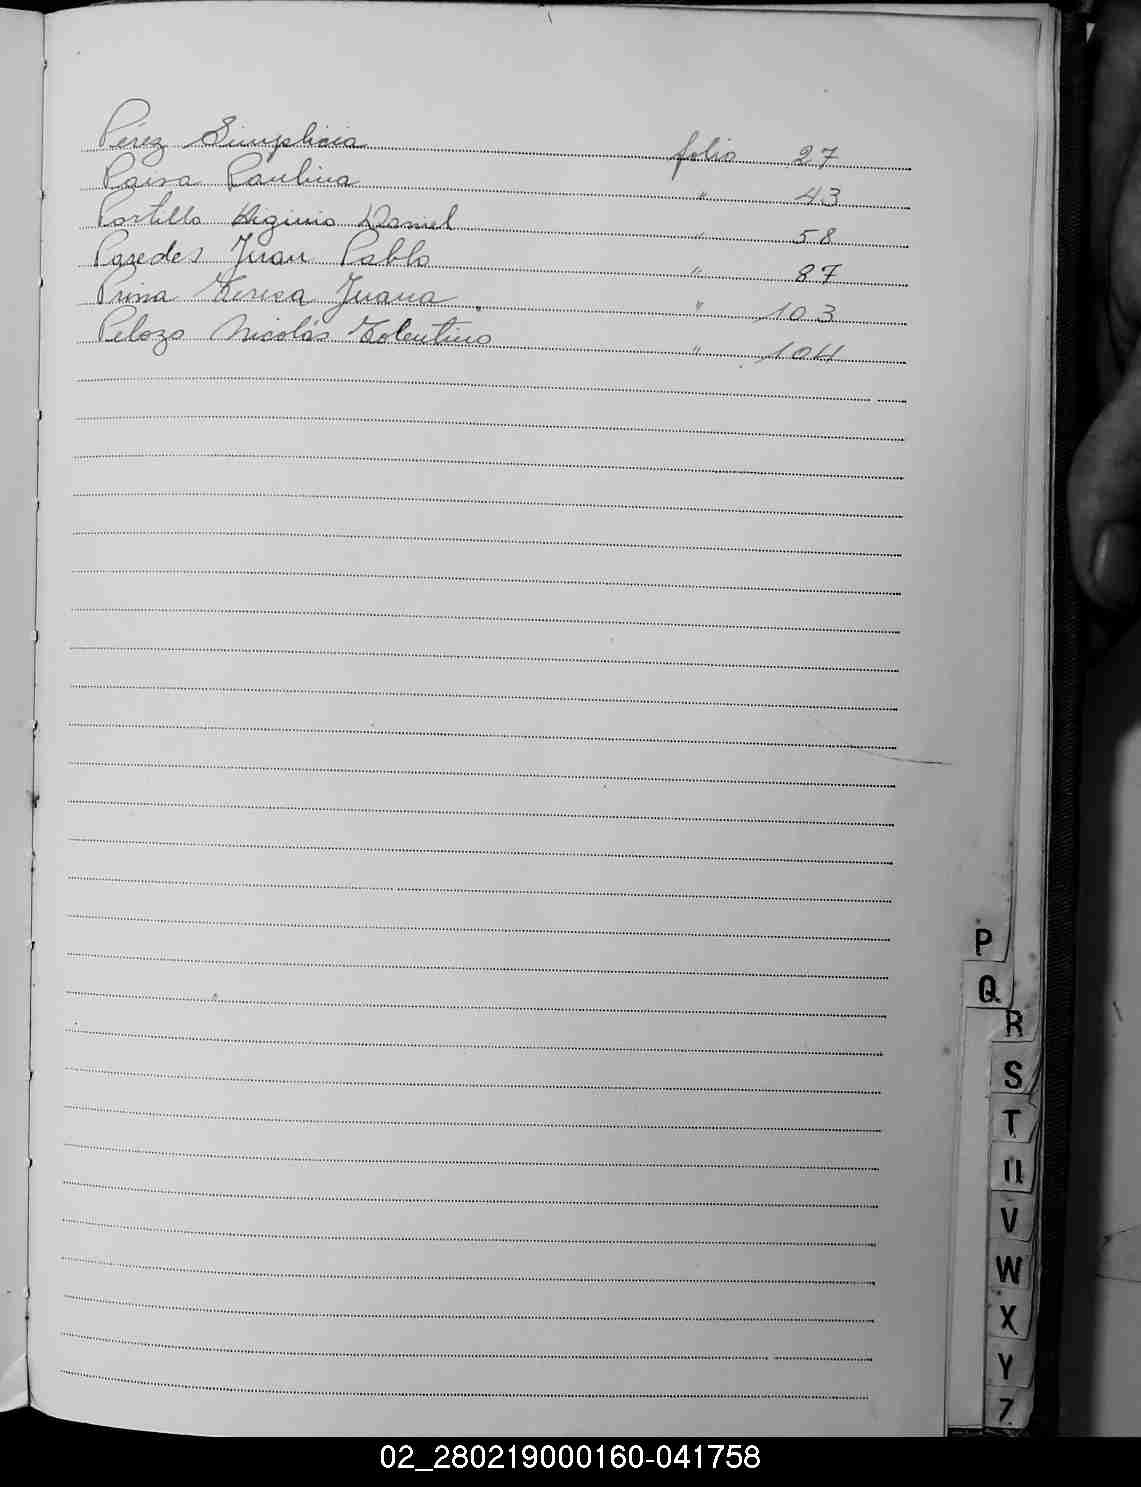 Pérez Simplicia folio 27
Paiva Paulina " 43
Portillo Higinio Daniel " 58
Paredes Juan Pablo " 87
Prina Teresa Juana " 103
Pelozo Nicolás Tolentino " 104
P
Q
R
S
T
U
V
W
X
Y
Z
02_280219000160-041758